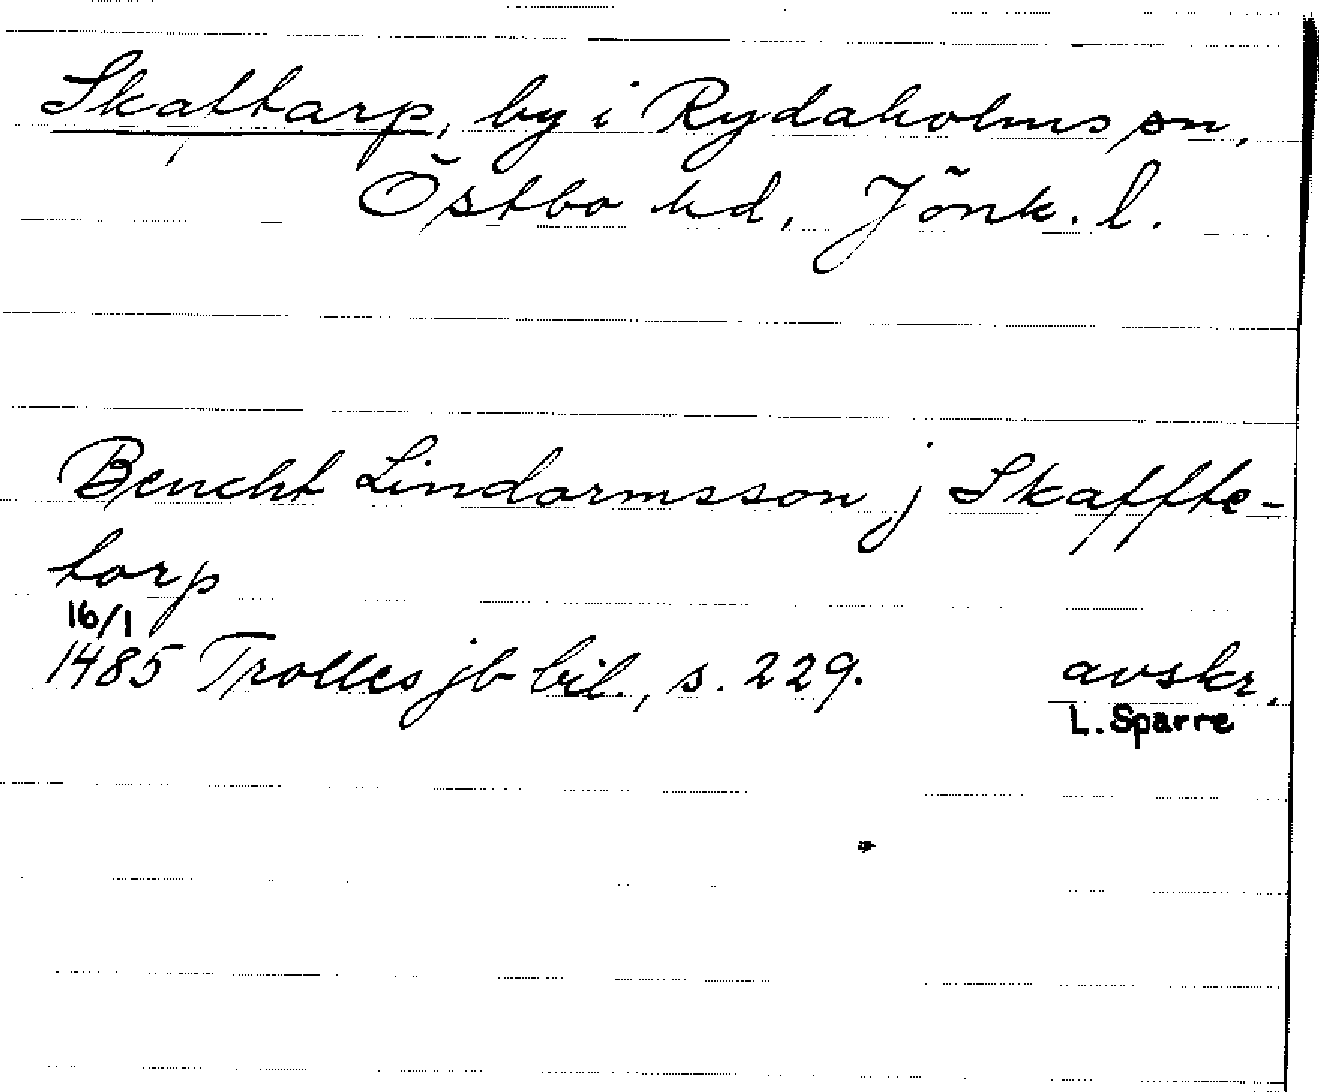 Skaftarp, by i Rydaholms sn,
Östbo hd, Jönk. l.
Bencht Lindormsson j Skaffte-
torp
16/1
1485 Trolles jb bil., s. 229. avskr.
L. Sparre